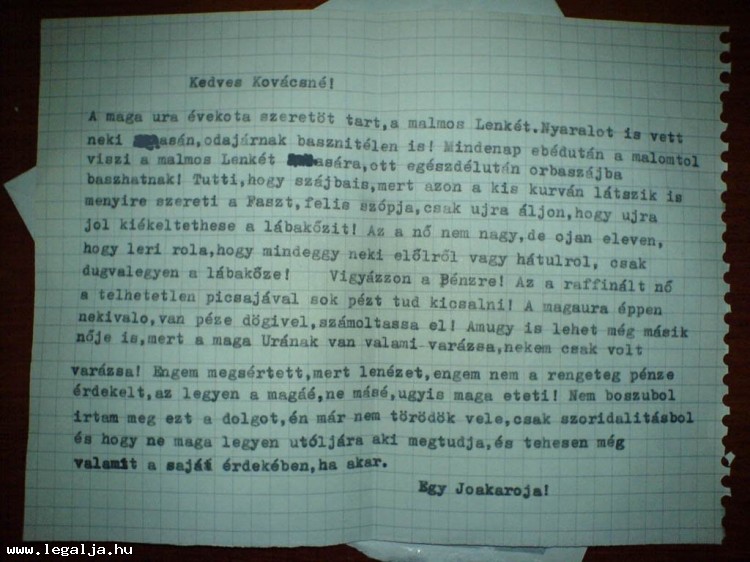 Kedves Kovácsné!
A maga ura évekota szeretöt tart,a malmos Lenkét.Nyaralot is vett
neki asán,odajárnak basznitélen is! Mindenap ebédután a malomtol
viszi a malmos Lenkét ására,ott egészdélután orbaszájba
baszhatnak! Tutti,hogy szájbais,mert azon a kis kurván látszik is
menyire szereti a Faszt,felis szópja,csak ujra áljon,hogy ujra
jol kiékeltethese a lábakőzit! Az a nő nem nagy,de ojan eleven,
hogy leri rola,hogy mindeggy neki előlről vagy hátulrol, csak
dugvalegyen a lábakőze! Vigyázzon a Bénzre! Az a raffinált nő
a telhetetlen picsajával sok pézt tud kicsalni! A magaura éppen
nekivalo,van péze dögivel,számoltassa el! Amugy is lehet még másik
nője is,mert a maga Urának van valami-varázsa,nekem csak volt
varázsa! Engem megsértett,mert lenézet,engem nem a rengeteg pénze
érdekelt,az legyen a magáé,ne másé,ugyis maga eteti! Nem boszubol
irtam meg ezt a dolgot,én már nem törödök vele,csak szoridalitásbol
és hogy ne maga legyen utóljára aki megtudja,és tehesen még
valamit a saját érdekében,ha akar.
Egy Joakaroja!
www.legalja.hu